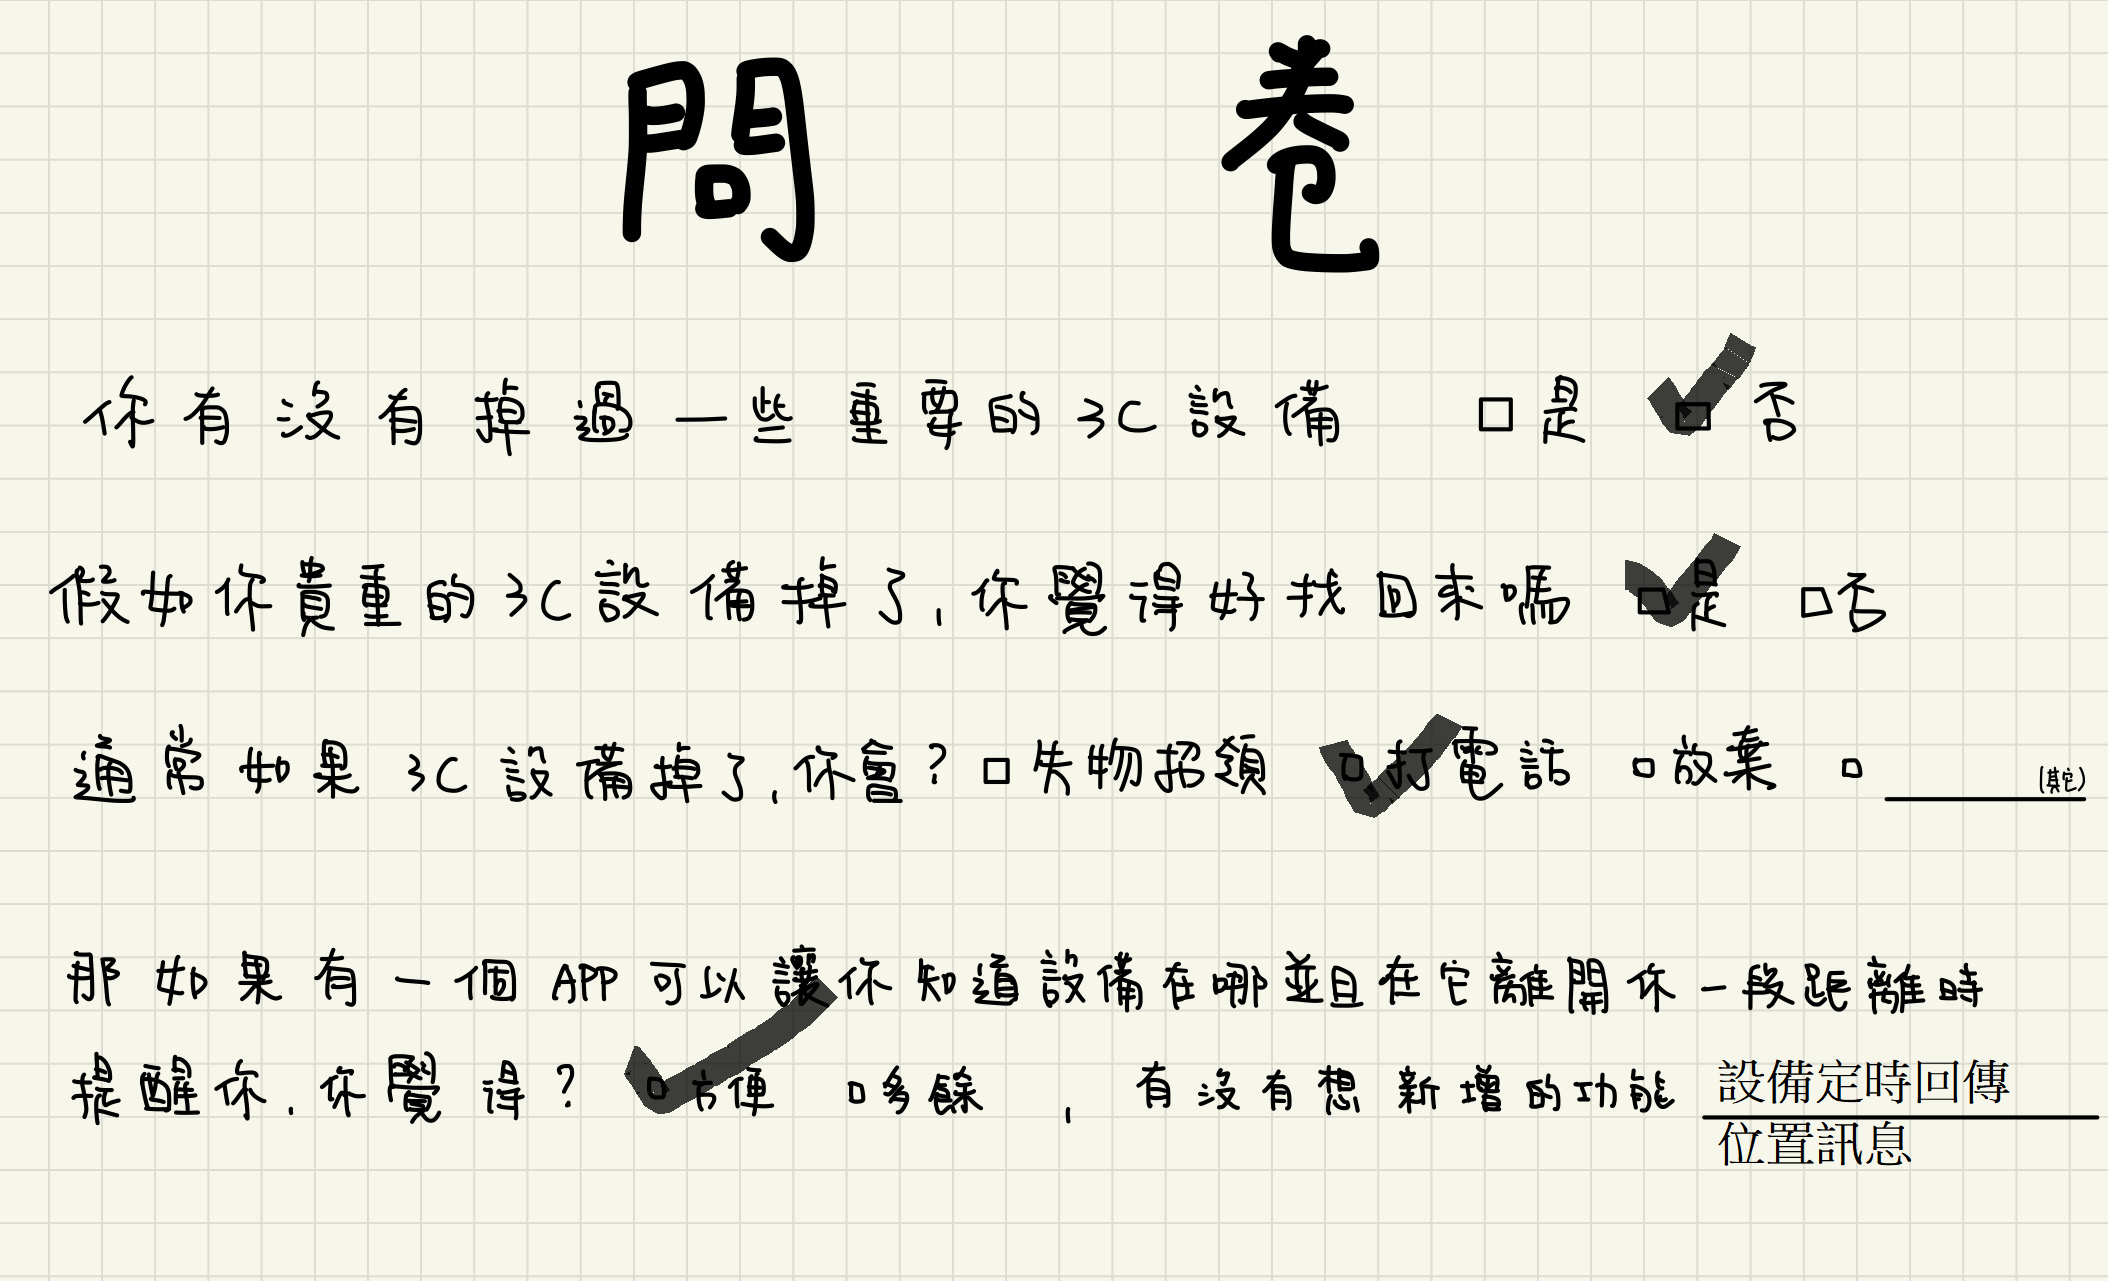 問卷
你有沒有掉過一些重要的3C設備 □是 ☑否
假如你貴重的3C設備掉了,你覺得好找回來嗎 ☑是 □否
通常如果3C設備掉了,你會?□失物招領 ☑打電話 □放棄 □______(其它)
那如果有一個APP可以讓你知道設備在哪並且在它離開你一段距離時
提醒你,你覺得? ☑方便 □多餘 ,有沒有想新增的功能 設備定時回傳
位置訊息